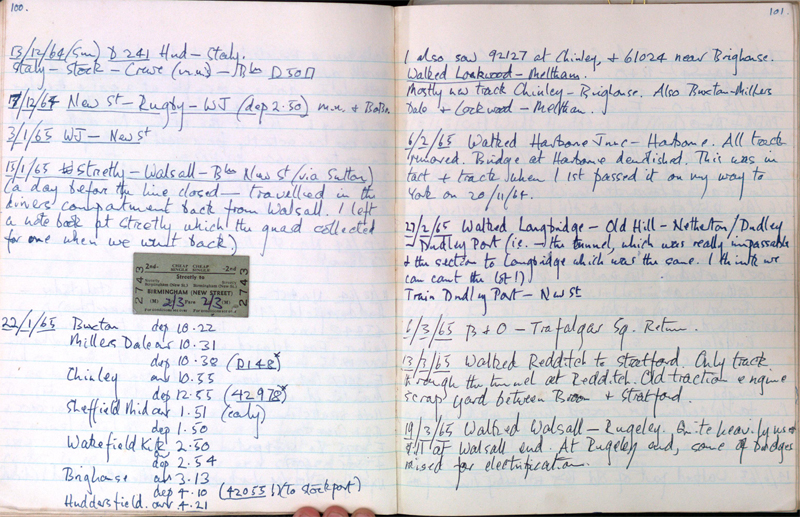 100.
13/12/64 (Sun) D 241 Hud – Staly.
Staly – Stock – Crewe (m.u.) – B'ho D50
12/64 New St – Rugby – WJ (dep 2.50) m.u. & BoBo.
3/1/65 WJ – New St
15/1/65 Streetly – Walsall – B'ho New St (via Sutton)
(a day before the line closed — travelled in the
drivers compartment back from Walsall. I left
a note book at Streetly which the guard collected
for me when we went back)
2nd - CHEAP CHEAP - 2nd
SINGLE SINGLE
Streetly to
BIRMINGHAM (NEW STREET)
(M) 2/3 Fare 2/3 (M)
2743 2743
22/1/65 Buxton dep 10.22
Millers Dale arr 10.31
dep 10.38 (D148*)
Chinley arr 10.55
dep 12.55 (42978*)
Sheffield Mid arr 1.51 (early)
dep 1.50
Wakefield Kgte 2.50
dep 2.54
Brighouse arr 3.13
dep 4.10 (42055!) (to Stockport)
Huddersfield. arr 4.21
101.
I also saw 92127 at Chinley, & 61024 near Brighouse.
Walked Lockwood – Meltham.
Mostly new track Chinley – Brighouse. Also Buxton – Millers
Dale & Lockwood – Meltham.
6/2/65 Walked Harborne Junc – Harborne. All track
removed. Bridge at Harborne demolished. This was in
tact & track when I 1st passed it on my way to
York on 20/11/64.
27/2/65 Walked Longbridge – Old Hill – Netherton/Dudley
– Dudley Port (i.e. – the tunnel, which was really impassable
& the section to Longbridge which was the same. I think we
can count the lot!)
Train Dudley Port – New St
6/3/65 B & O – Trafalgar Sq. Return.
13/3/65 Walked Redditch to Stratford. Only track
through the tunnel at Redditch. Old traction engine
scrap yard between Broom & Stratford.
19/3/65 Walked Walsall – Rugeley. Quite heavily used
still at Walsall end. At Rugeley end, some of bridges
raised for electrification.